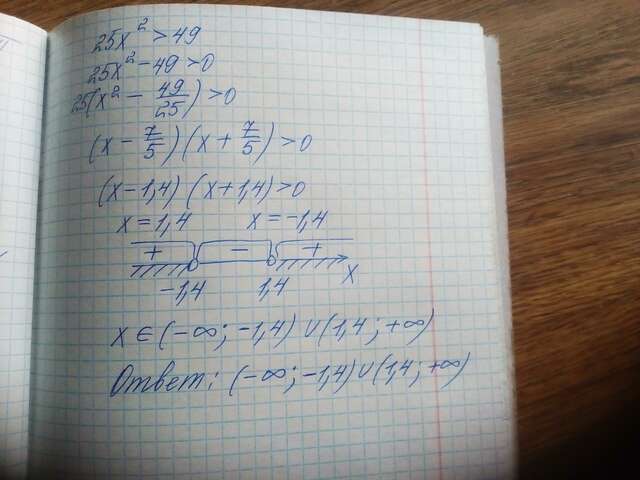 25x² > 49
25x² - 49 > 0
25(x² - 49/25) > 0
(x - 7/5)(x + 7/5) > 0
(x - 1,4)(x + 1,4) > 0
x = 1,4 x = -1,4
+ - +
-1,4 1,4 x
x ∈ (-∞; -1,4) ∪ (1,4; +∞)
Ответ: (-∞; -1,4) ∪ (1,4; +∞)